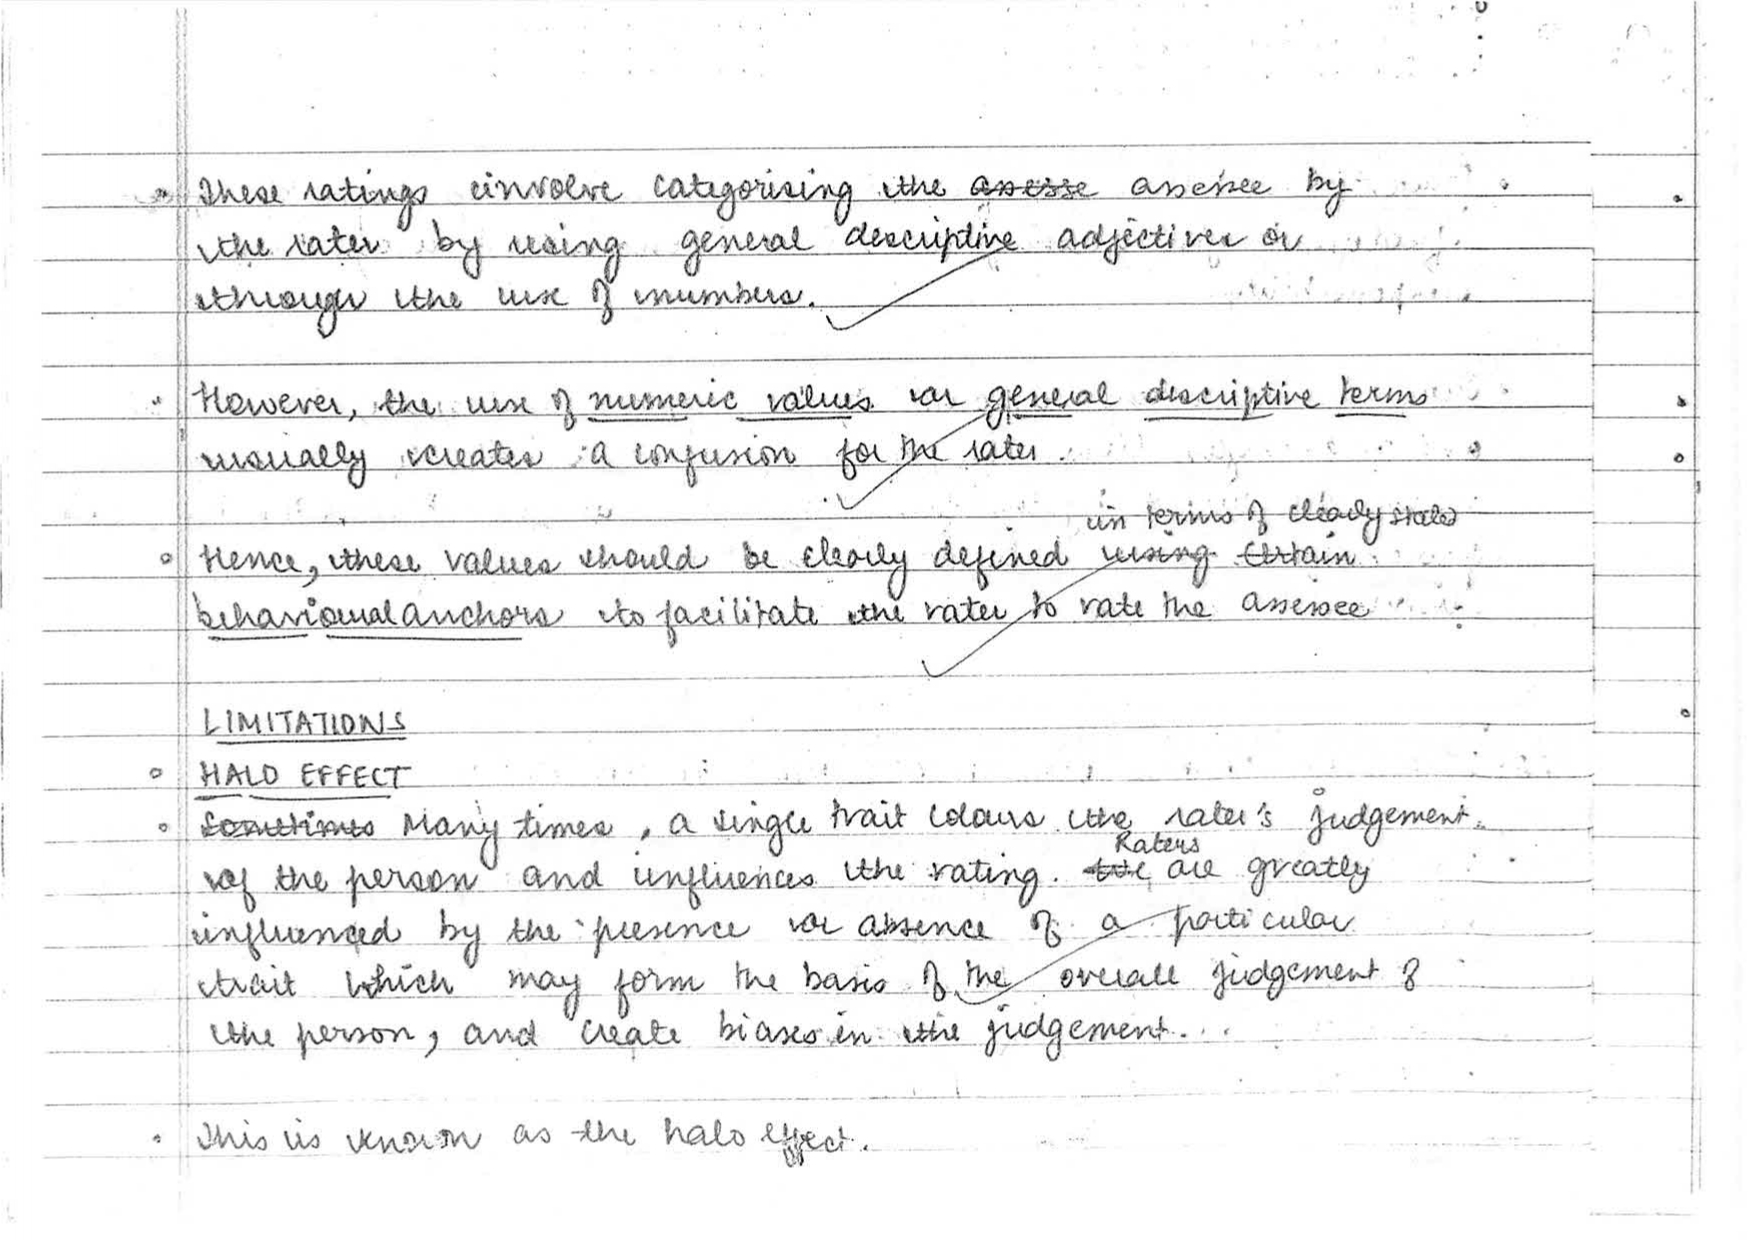 • These ratings involve categorising the assesse assessee by
the rater by using general descriptive adjectives or
through the use of numbers.
• However, the use of numeric values or general descriptive terms
usually creates a confusion for the rater.
in terms of clearly stated
• Hence, these values should be clearly defined using certain
behavioural anchors to facilitate the rater to rate the assessee
LIMITATIONS
• HALO EFFECT
• Sometimes Many times, a single trait colours the rater's judgement
Raters
of the person and influences the rating. are greatly
influenced by the presence or absence of a particular
trait which may form the basis of the overall judgement of
the person, and create biases in the judgement...
• This is known as the halo effect.